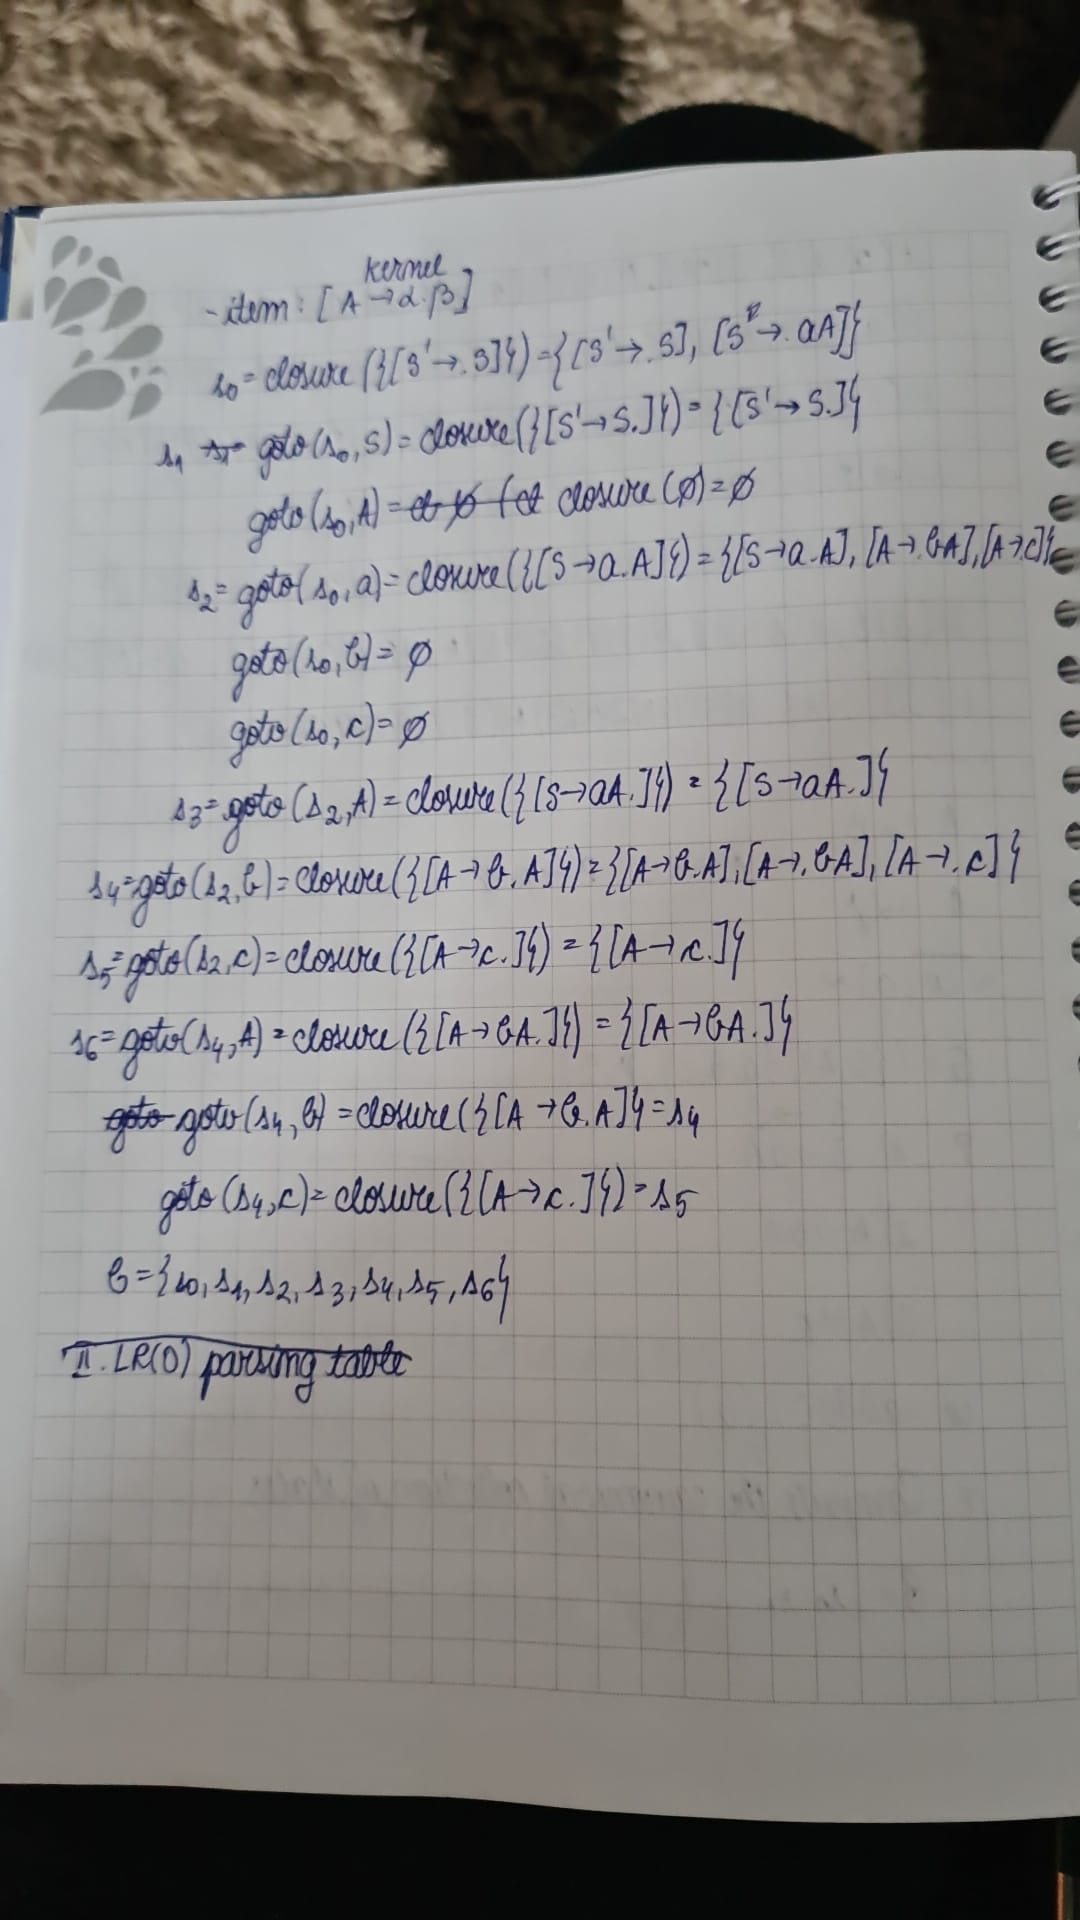 kernel
- item: [A → α.β]
s0 = closure ({[S' → .S]}) = {[S' → .S], [S → .aA]}
s1 = goto (s0, S) = closure ({[S' → S.]}) = {[S' → S.]}
goto (s0, A) = closure (∅) = ∅
s2 = goto (s0, a) = closure ({[S → a.A]}) = {[S → a.A], [A → .bA], [A → .c]}
goto (s0, b) = ∅
goto (s0, c) = ∅
s3 = goto (s2, A) = closure ({[S → aA.]}) = {[S → aA.]}
s4 = goto (s2, b) = closure ({[A → b.A]}) = {[A → b.A], [A → .bA], [A → .c]}
s5 = goto (s2, c) = closure ({[A → c.]}) = {[A → c.]}
s6 = goto (s4, A) = closure ({[A → bA.]}) = {[A → bA.]}
goto goto (s4, b) = closure ({[A → b.A]} = s4
goto (s4, c) = closure ({[A → c.]}) = s5
C = {s0, s1, s2, s3, s4, s5, s6}
II. LR(0) parsing table